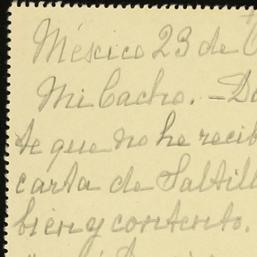 México 23 de
Mi Cacho. - Do
te que no he recib
carta de Saltill
bien y contento.